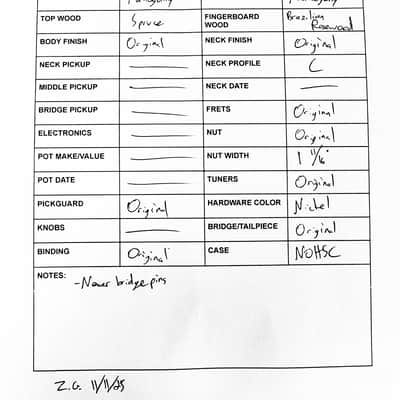 Mahogany Mahogany
TOP WOOD Spruce FINGERBOARD WOOD Brazilian Rosewood
BODY FINISH Original NECK FINISH Original
NECK PICKUP — NECK PROFILE C
MIDDLE PICKUP — NECK DATE —
BRIDGE PICKUP — FRETS Original
ELECTRONICS — NUT Original
POT MAKE/VALUE — NUT WIDTH 1 11/16"
POT DATE — TUNERS Original
PICKGUARD Original HARDWARE COLOR Nickel
KNOBS — BRIDGE/TAILPIECE Original
BINDING Original CASE NOHSC
NOTES: -Newer bridge pins
Z.G. 11/11/25